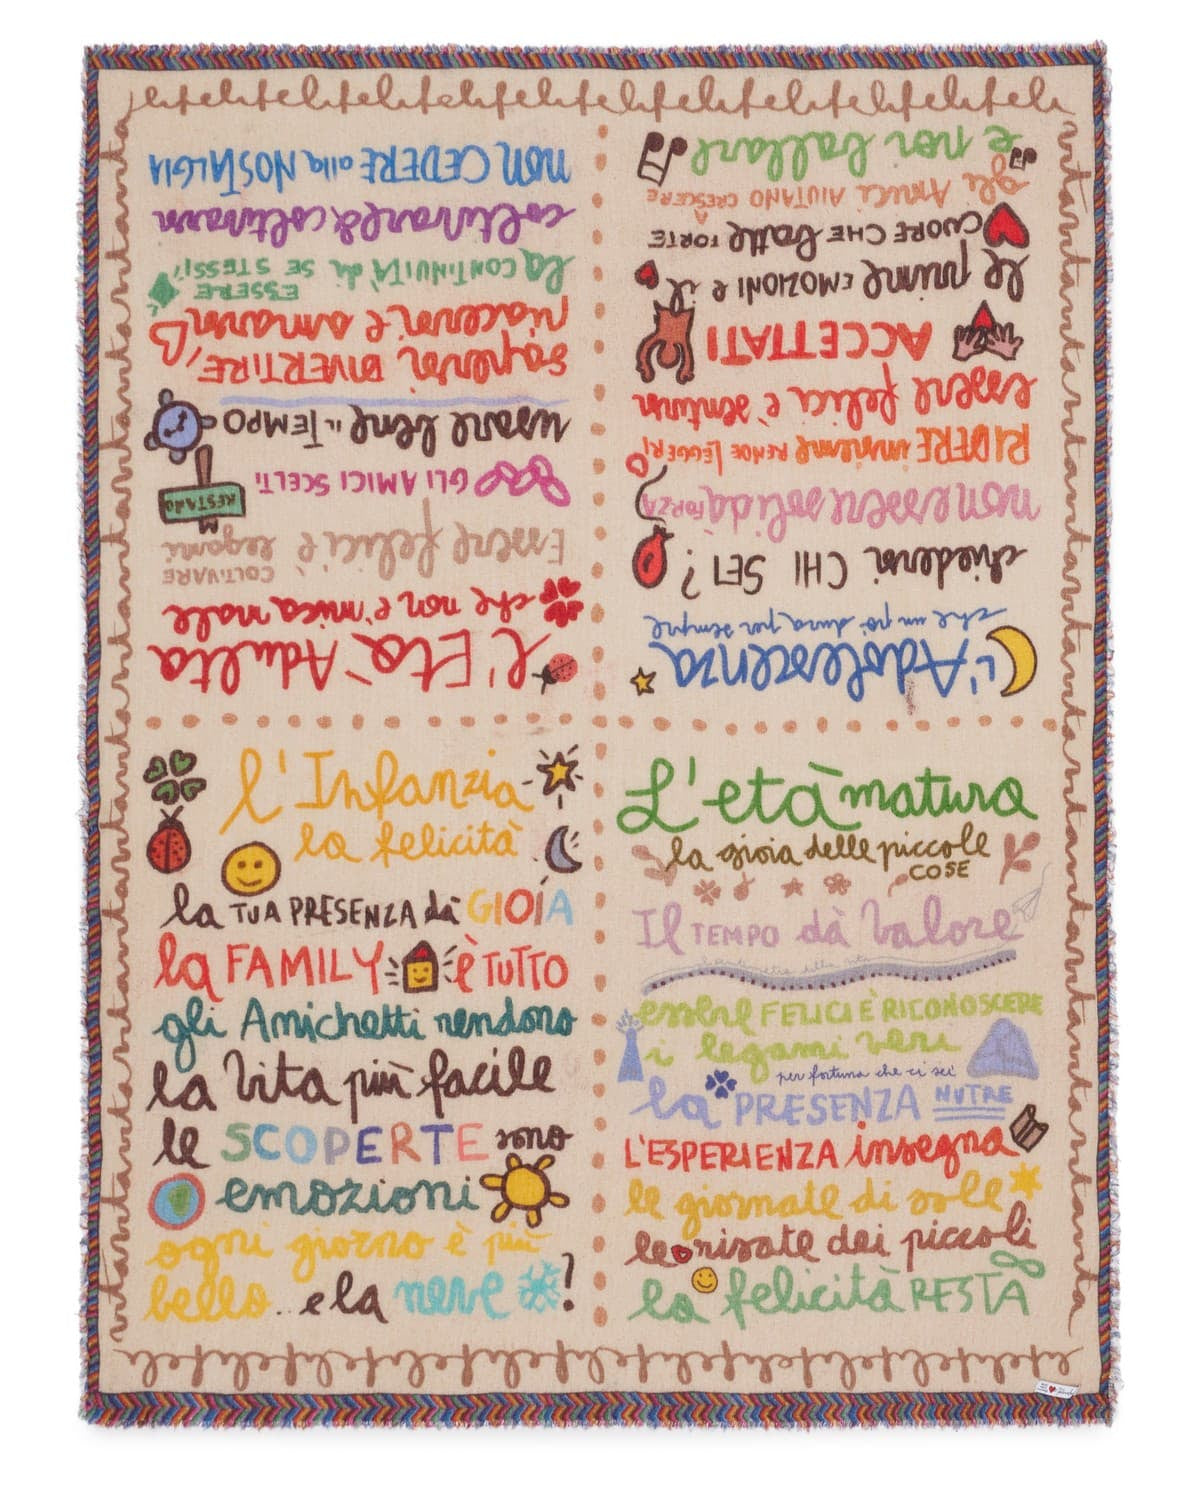 l'Infanzia
la felicità
la TUA PRESENZA dà GIOIA
la FAMILY è TUTTO
gli Amichetti rendono
la vita più facile
le SCOPERTE sono
emozioni
ogni giorno è più
bello.. e la neve ?
L'età matura
la gioia delle piccole
COSE
Il TEMPO dà valore
essere FELICI È RICONOSCERE
i legami veri
per fortuna che ci sei
la PRESENZA NUTRE
L'ESPERIENZA insegna
le giornate di sole
le risate dei piccoli
la felicità RESTA
L'Adolescenza
che un po' dura per sempre
chiedersi CHI SEI?
non essere soli dà FORZA
RIDERE insieme RENDE LEGGERI
essere felici è sentirsi
ACCETTATI
le prime EMOZIONI e il
CUORE CHE batte FORTE
gli AMICI AIUTANO A CRESCERE
e noi ballare
l'Età Adulta
che non è mica male
Essere felici è COLTIVARE
legami
GLI AMICI SCELTI
RESTANO
usare bene IL TEMPO
sapersi DIVERTIRE,
piacersi e amarsi
ESSERE
la CONTINUITÀ di SE STESSI,
coltivare & coltivarsi
non CEDERE alla NOSTALGIA